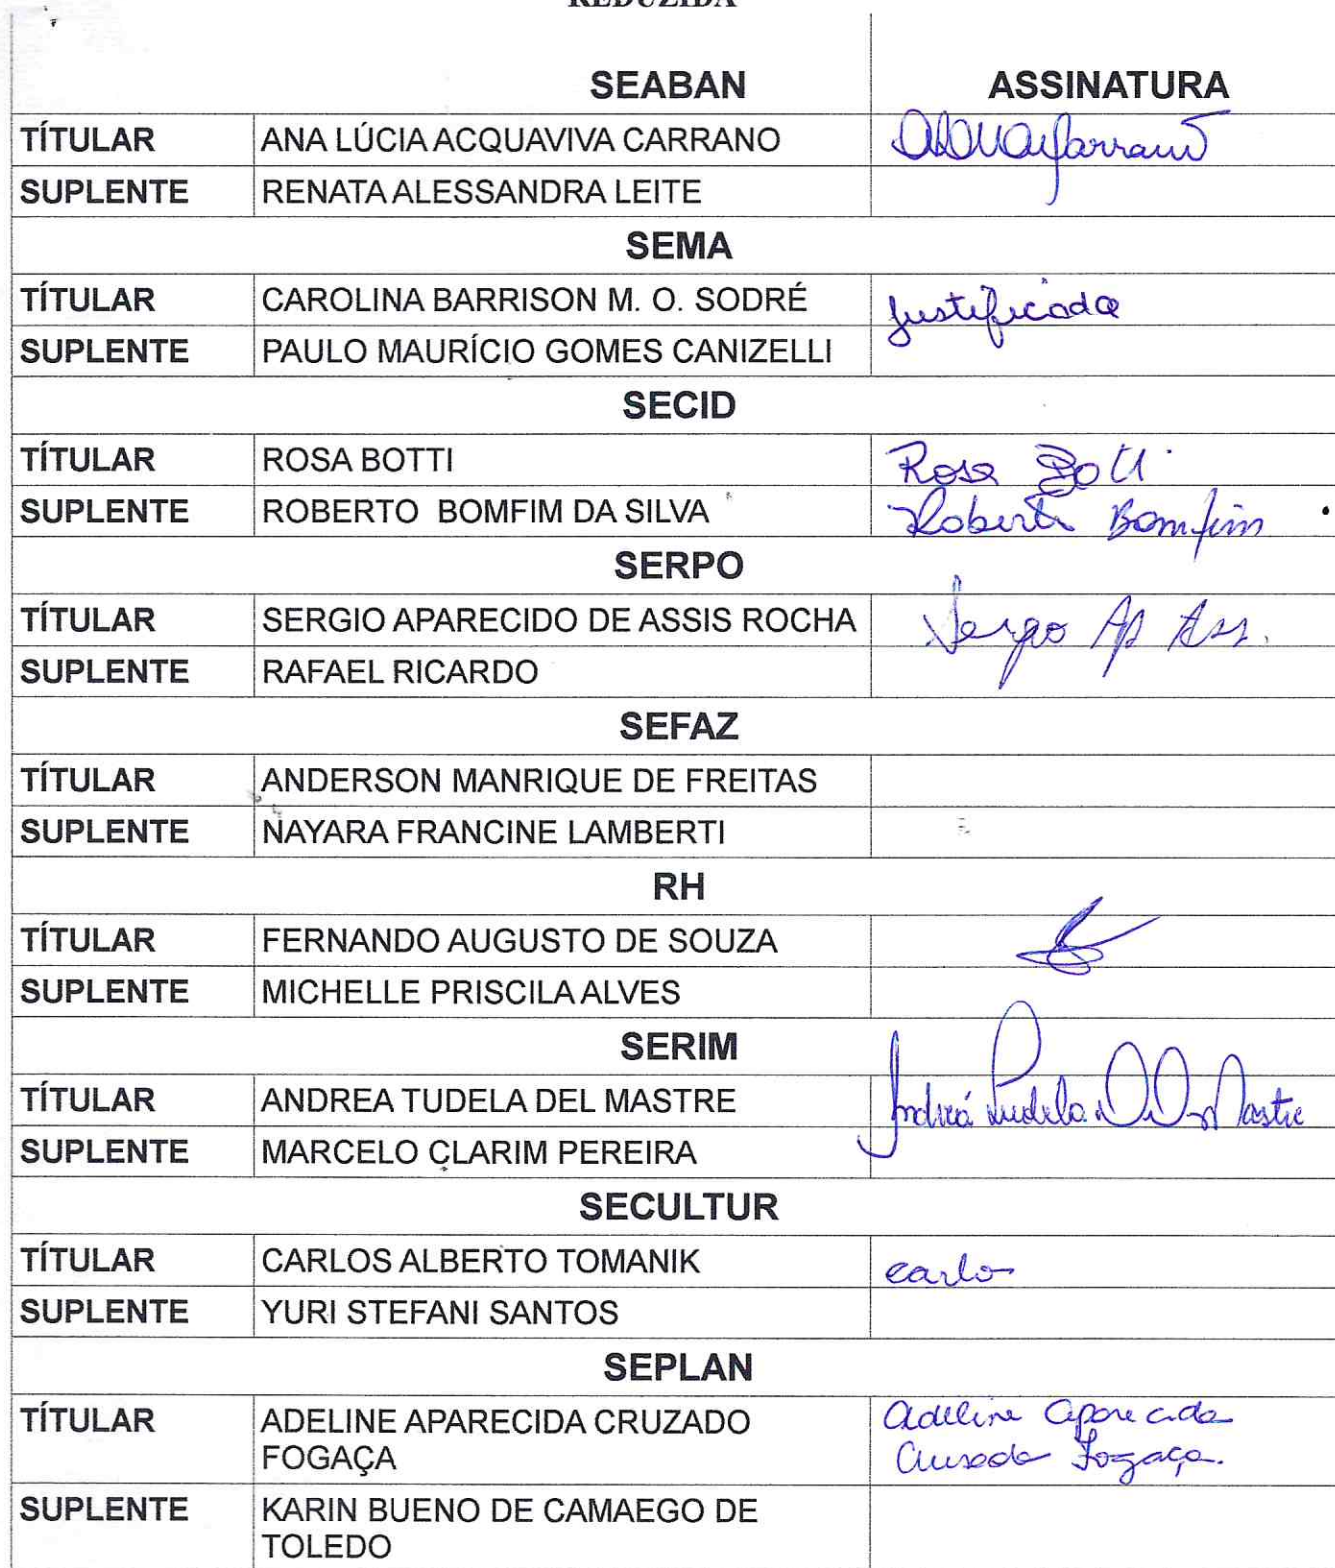 REDUZIDA
SEABAN ASSINATURA
TÍTULAR ANA LÚCIA ACQUAVIVA CARRANO
SUPLENTE RENATA ALESSANDRA LEITE
SEMA
TÍTULAR CAROLINA BARRISON M. O. SODRÉ Justificada
SUPLENTE PAULO MAURÍCIO GOMES CANIZELLI
SECID
TÍTULAR ROSA BOTTI Rosa Botti
SUPLENTE ROBERTO BOMFIM DA SILVA Roberto Bomfim
SERPO
TÍTULAR SERGIO APARECIDO DE ASSIS ROCHA Sergio Ap Ass.
SUPLENTE RAFAEL RICARDO
SEFAZ
TÍTULAR ANDERSON MANRIQUE DE FREITAS
SUPLENTE NAYARA FRANCINE LAMBERTI
RH
TÍTULAR FERNANDO AUGUSTO DE SOUZA
SUPLENTE MICHELLE PRISCILA ALVES
SERIM
TÍTULAR ANDREA TUDELA DEL MASTRE Andrea Tudela Del Mastre
SUPLENTE MARCELO CLARIM PEREIRA
SECULTUR
TÍTULAR CARLOS ALBERTO TOMANIK Carlo
SUPLENTE YURI STEFANI SANTOS
SEPLAN
TÍTULAR ADELINE APARECIDA CRUZADO Adeline Aparecida
FOGAÇA Cruzado Fogaça.
SUPLENTE KARIN BUENO DE CAMAEGO DE
TOLEDO